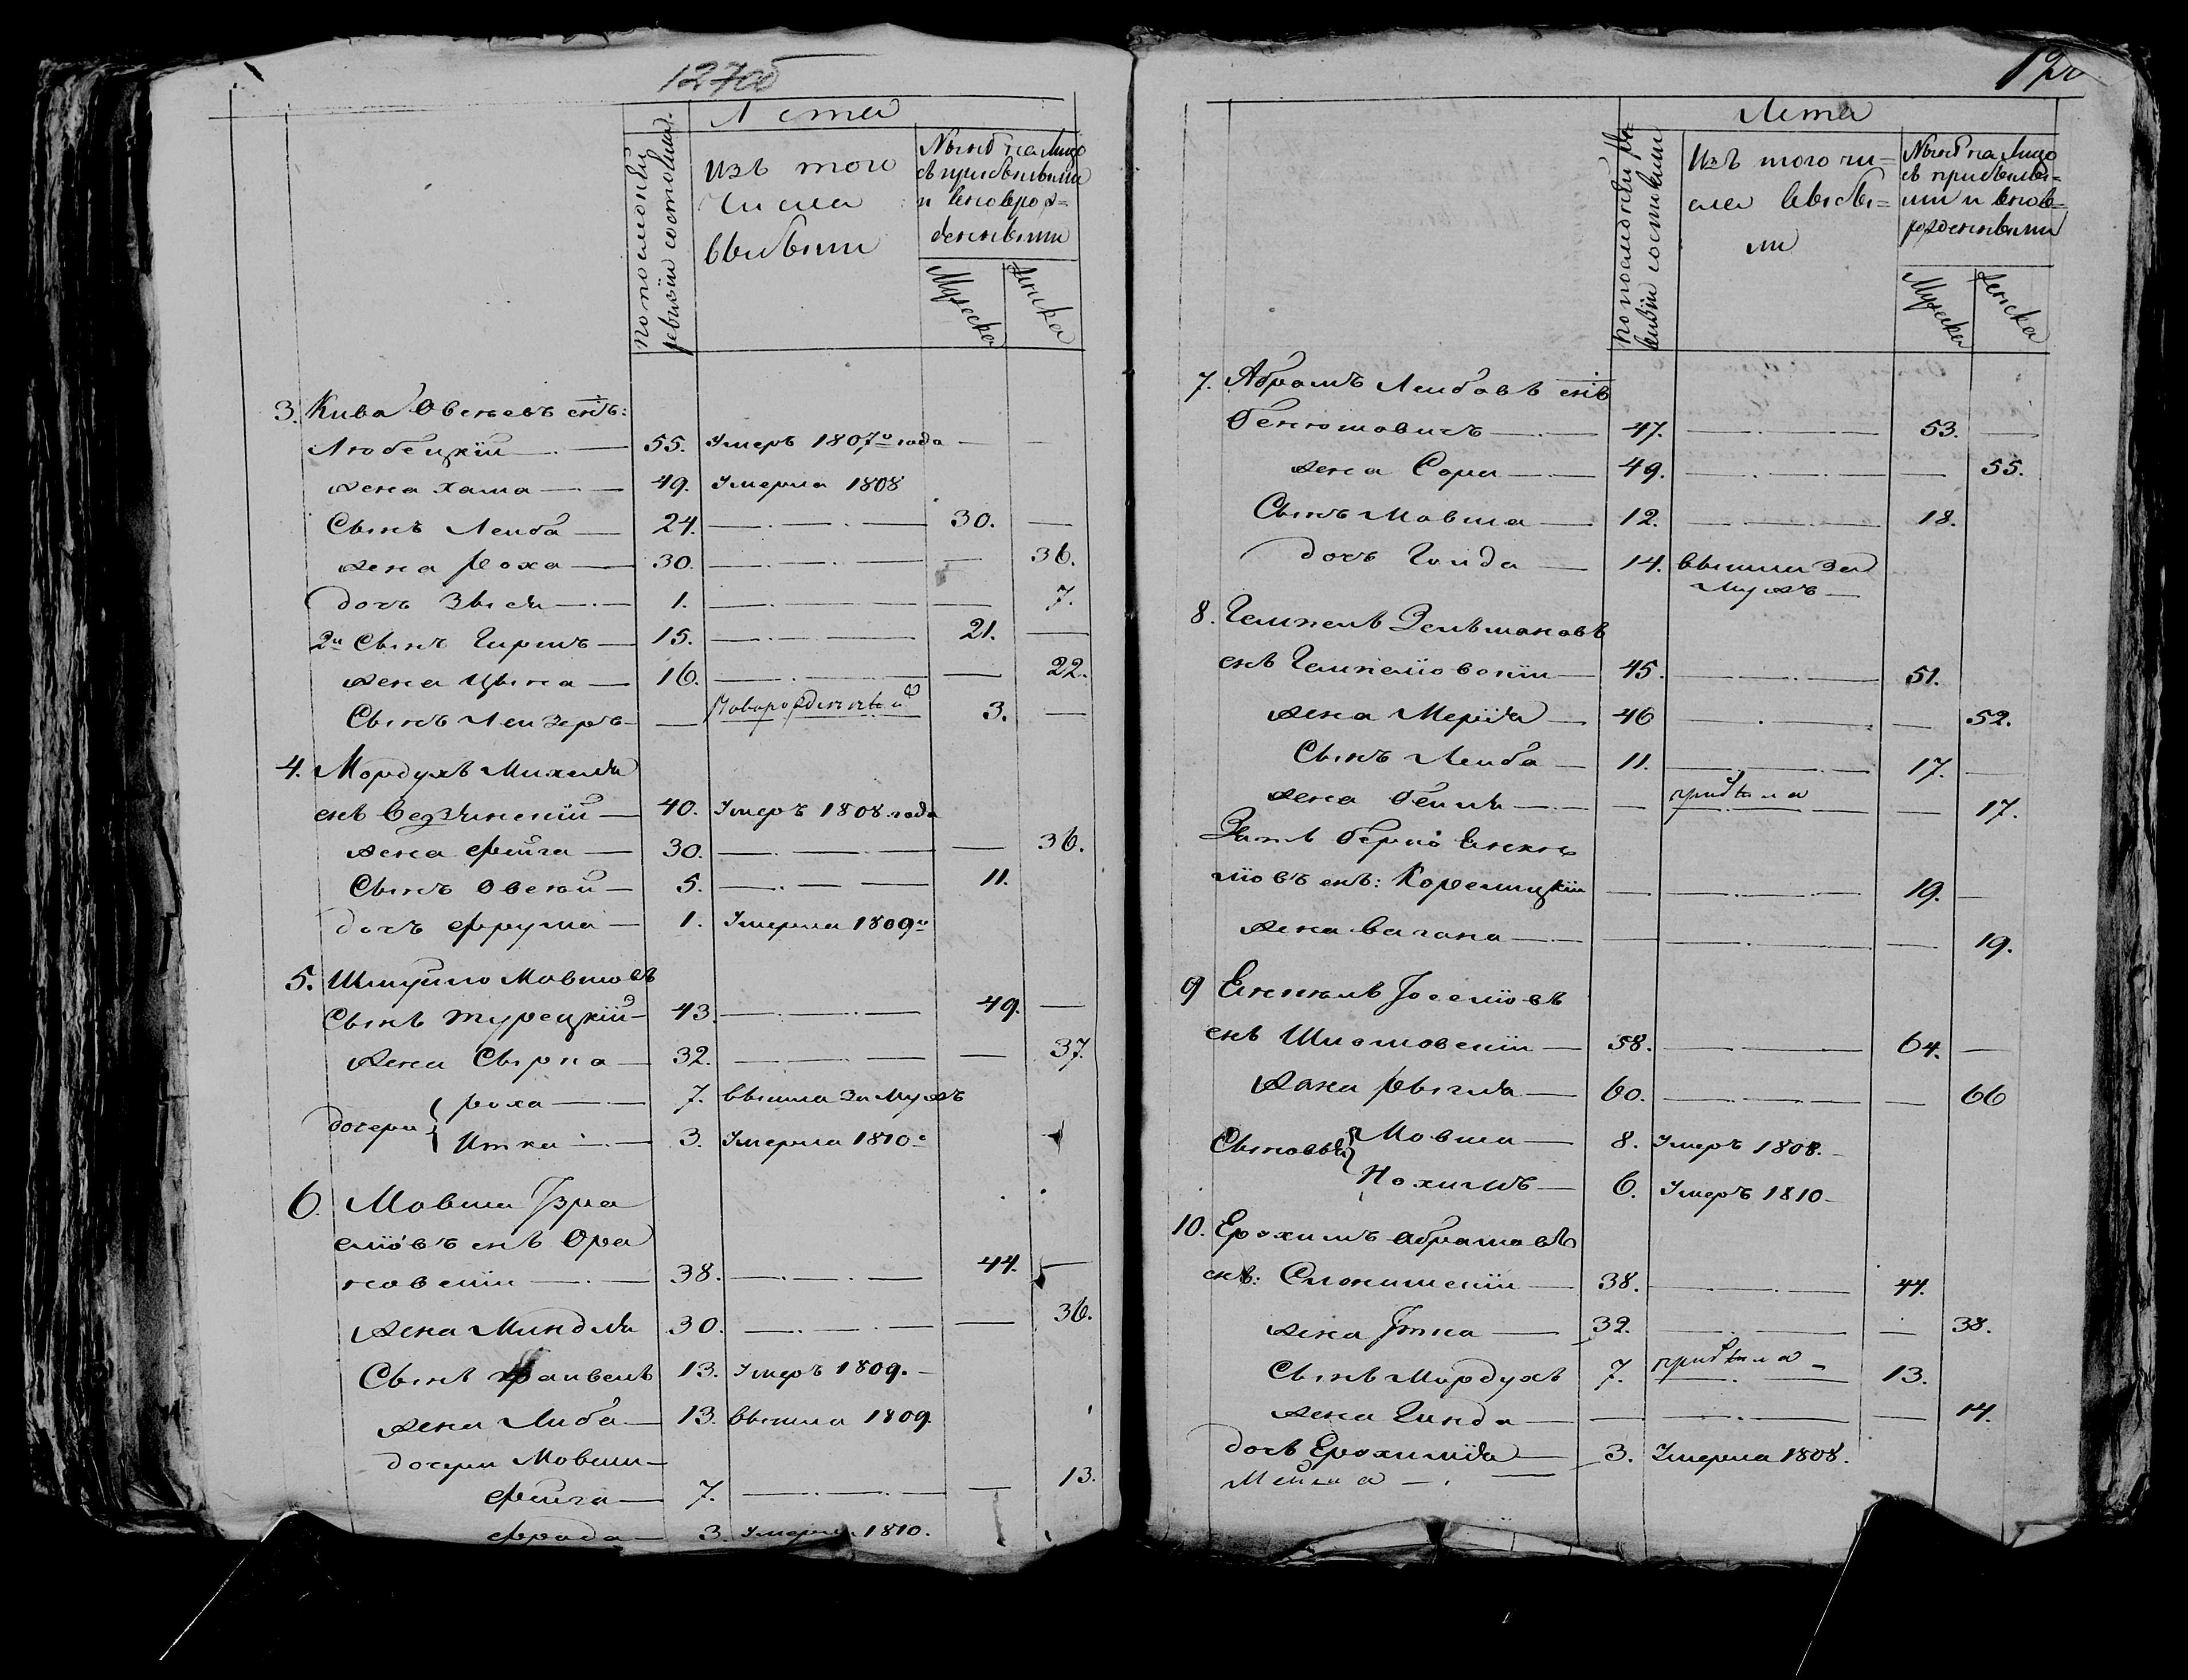 127об
Лета
По последней
ревизіи состояли
изъ того
числа
выбыли
Ныне на лицо
съ прибылыми
и вновьрож=
денными
Мужеска
Женска
3. Кива Овсеевъ снъ:
Любецкій — 55. Умеръ 1807го года — —
жена Хама — 49. Умерла 1808
Сынъ Лейба — 24. — 30. —
жена Роха — 30. — — 36.
дочь Звися — 1. — — 7.
2й Сынъ Гиршъ — 15. — 21. —
жена Цына — 16. — — 22.
Сынъ Лейзеръ — — Новорожденный 3. —
4. Мордухъ Михеля
снъ — 40. Умеръ 1808 года
жена Фейга — 30. — — 36.
Сынъ Овсей — 5. — 11.
дочь Фрума — 1. Умерла 1809го
5. Шмуйло Мовшовъ
Сынъ Турецкій — 43. — 49. —
жена Сырка — 32. — — 37.
дочери { Роха — 7. вышла за мужъ
Итка — 3. Умерла 1810г
6. Мовша Изра
еліовъ снъ Ора
новскій — 38. — 44. —
жена Миндля 30. — — 36.
Сынъ Файвель 13. Умеръ 1809. —
жена Либа — 13. вышла 1809
дочери Мовши —
Фейга — 7. — — 13.
Фрада — 3. Умерла 1810.
Лета
По последней ре-
визіи состояли
Изъ того чи=
сла выбы=
ли
Ныне на лицо
съ прибылы=
ми и вновь=
рожденными
Мужеска
Женска
7. Абрамъ Лейбовъ снъ
Бенюшовичъ — 47. — 53. —
жена Сора — 49. — — 55.
Сынъ Мовша — 12. — 18.
дочь Голда — 14. вышла за
мужъ —
8. Гемпель Зельмановъ
снъ Гемпелювскій — 45. — 51.
жена Мерія — 46 — — 52.
Сынъ Лейба — 11. — 17. —
жена Бейля — — прибыла — 17.
Зять Берко Енкеле
ліовъ снъ: Корелицкій — — 19. —
жена — — — 19.
9 Енкель Іоселіовъ
снъ Шломовскій — 58. — 64. —
жена Рыгля — 60. — — 66
Сыновья { Мовша — 8. Умеръ 1808. —
Нохимъ — 6. Умеръ 1810 —
10. Ерохимъ Абрамовъ
снъ: Слонимскій — 38. — 44.
жена Итка — 32. — — 38.
Сынъ Мордухъ 7. прибыла — 13.
жена Гинда — — — — 14.
дочь Ерохимля — 3. Умерла 1808.